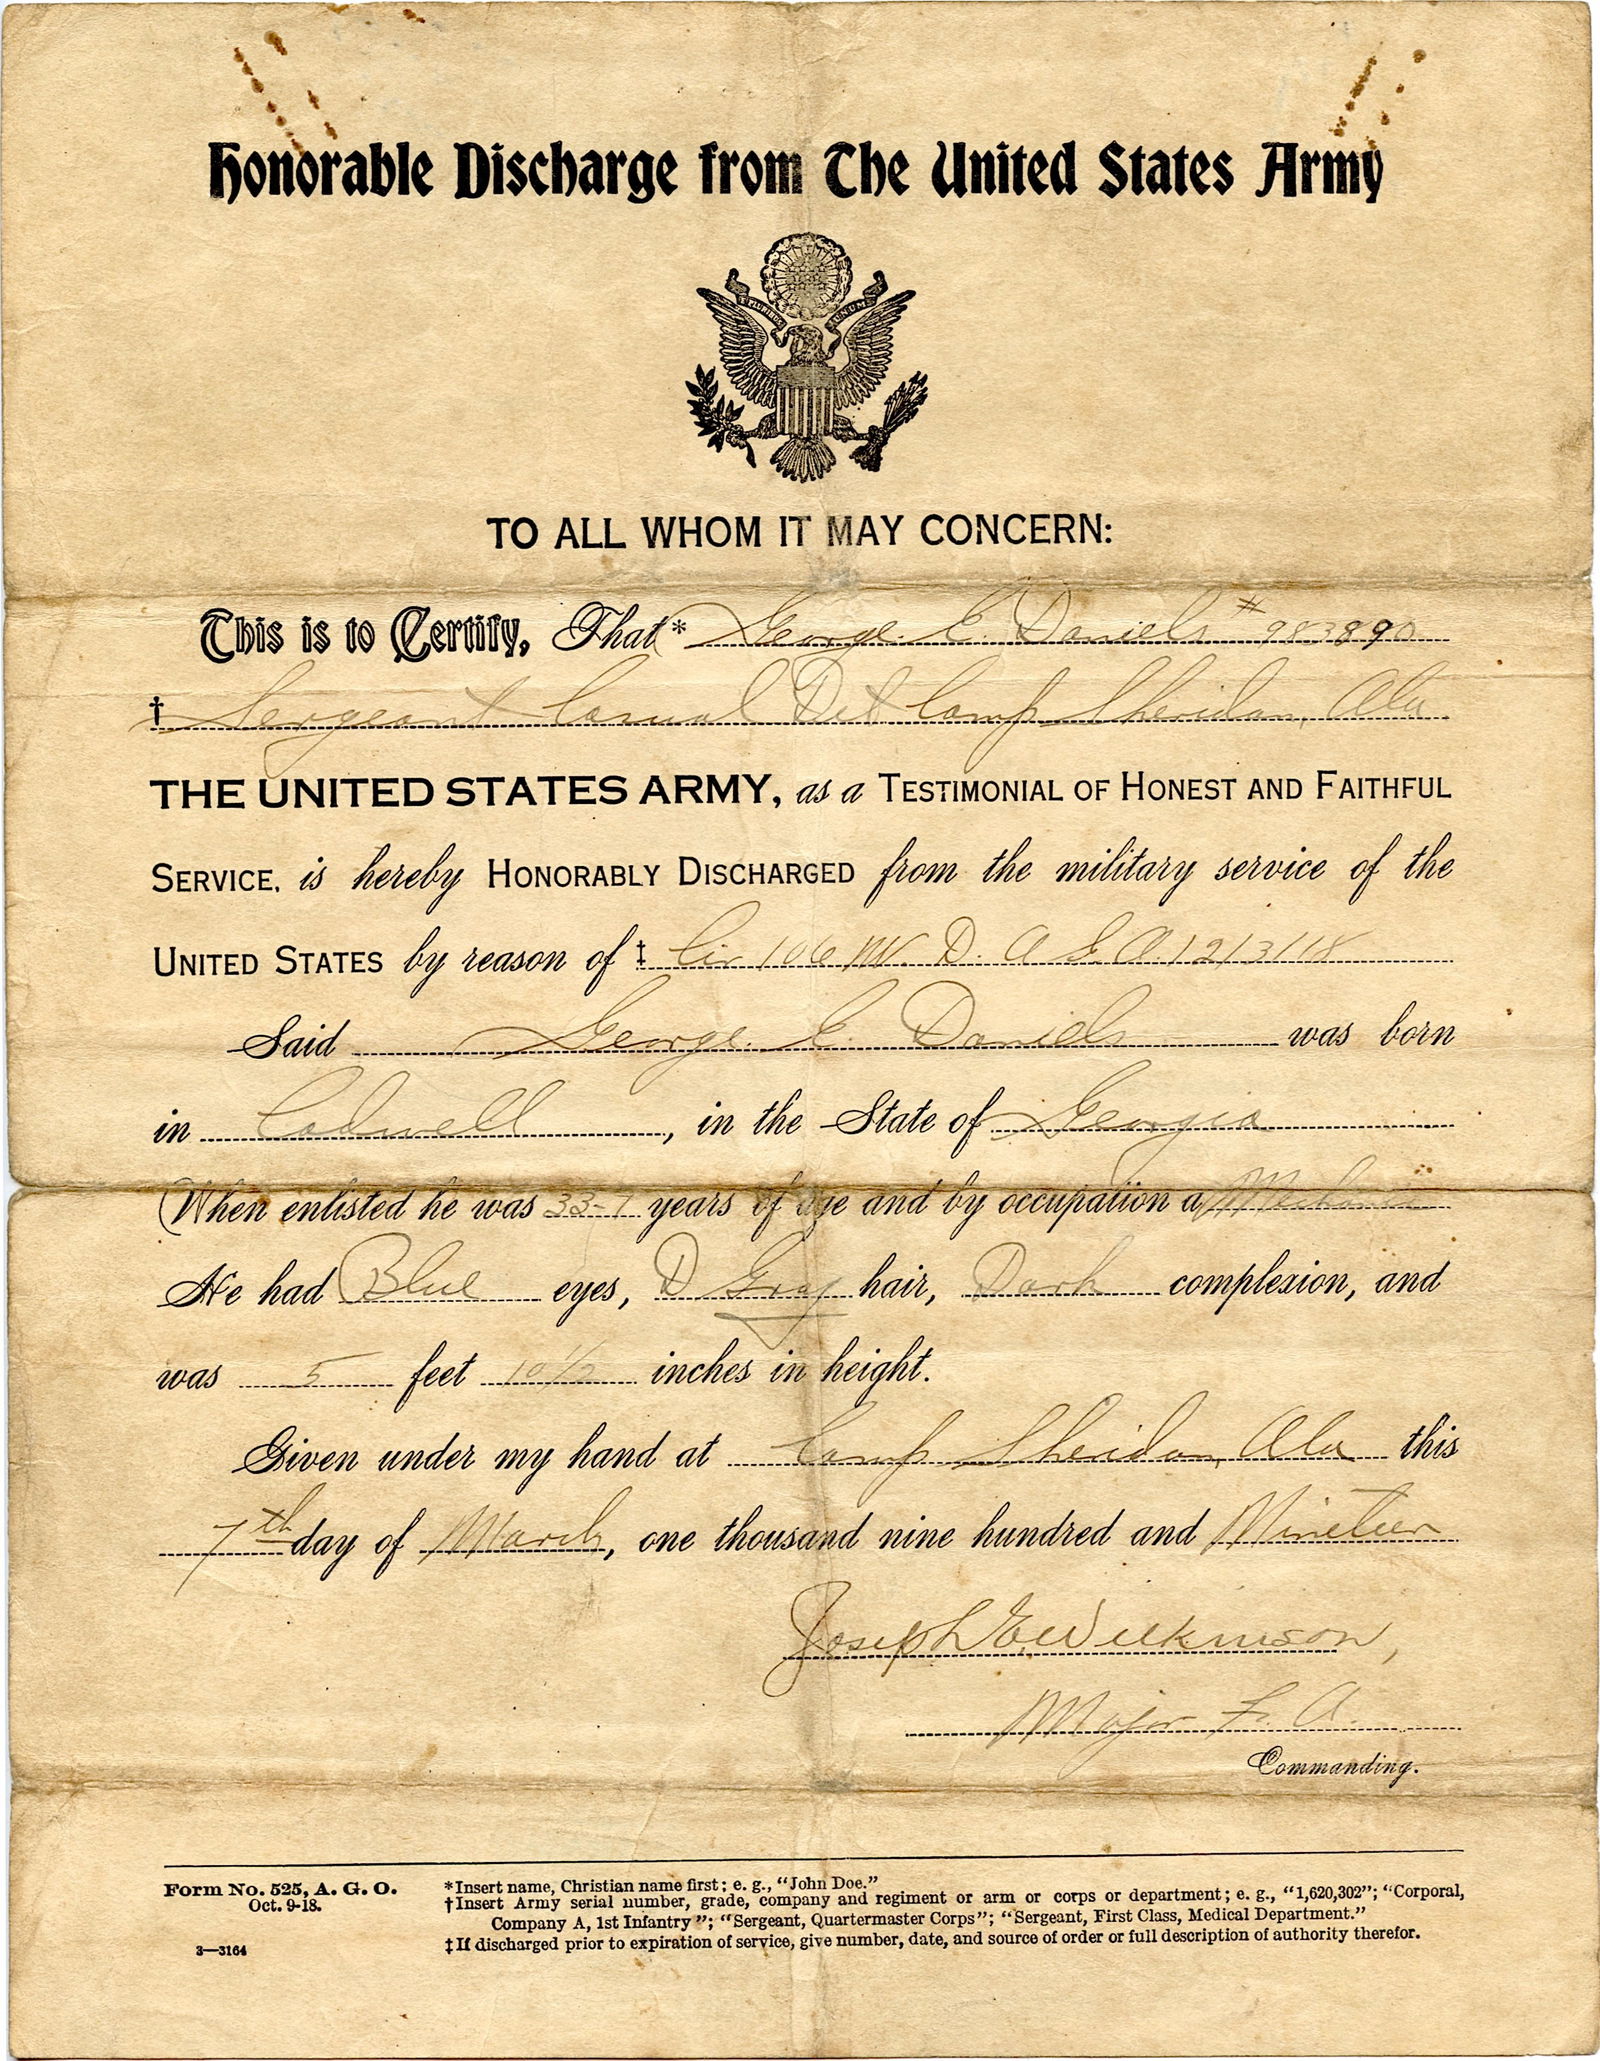 Honorable Discharge from The United States Army
E PLURIBUS UNUM
TO ALL WHOM IT MAY CONCERN:
This is to Certify, That* George. E. Daniels # 983890
† Sergeant Casual Det Camp Sheridan, Ala
THE UNITED STATES ARMY, as a TESTIMONIAL OF HONEST AND FAITHFUL
SERVICE, is hereby HONORABLY DISCHARGED from the military service of the
UNITED STATES by reason of ‡ Cir 106 W. D. 12/3/18
Said George. E. Daniels was born
in Cadwell, in the State of Georgia
When enlisted he was 33- years of age and by occupation a Mechanic
He had Blue eyes, D Gray hair, Dark complexion, and
was 5 feet 10 1/2 inches in height.
Given under my hand at Camp Sheridan, Ala this
7th day of March, one thousand nine hundred and Nineteen
Joseph E Wilkinson,
Major F. A.
Commanding.
Form No. 525, A. G. O.
Oct. 9-18.
3—3164
*Insert name, Christian name first; e. g., “John Doe.”
†Insert Army serial number, grade, company and regiment or arm or corps or department; e. g., “1,620,302”; “Corporal,
Company A, 1st Infantry”; “Sergeant, Quartermaster Corps”; “Sergeant, First Class, Medical Department.”
‡If discharged prior to expiration of service, give number, date, and source of order or full description of authority therefor.